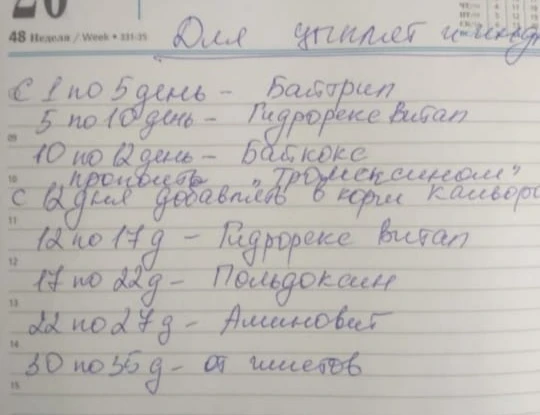 20
48 Неделя / Week • 331-35
Для цыплят и индю
С 1 по 5 день - Байтрил
5 по 10 день - Гидрорекс Витал
09
10 по 12 день - Байкокс
10
пропоить "Тромексином"
С 12 дня добавлять в корм
11
12 по 17 д - Гидрорекс Витал
12
17 по 22 д - Польдоксин
13
22 по 27 д - Аминовит
14
30 по 35 д - от глистов
15